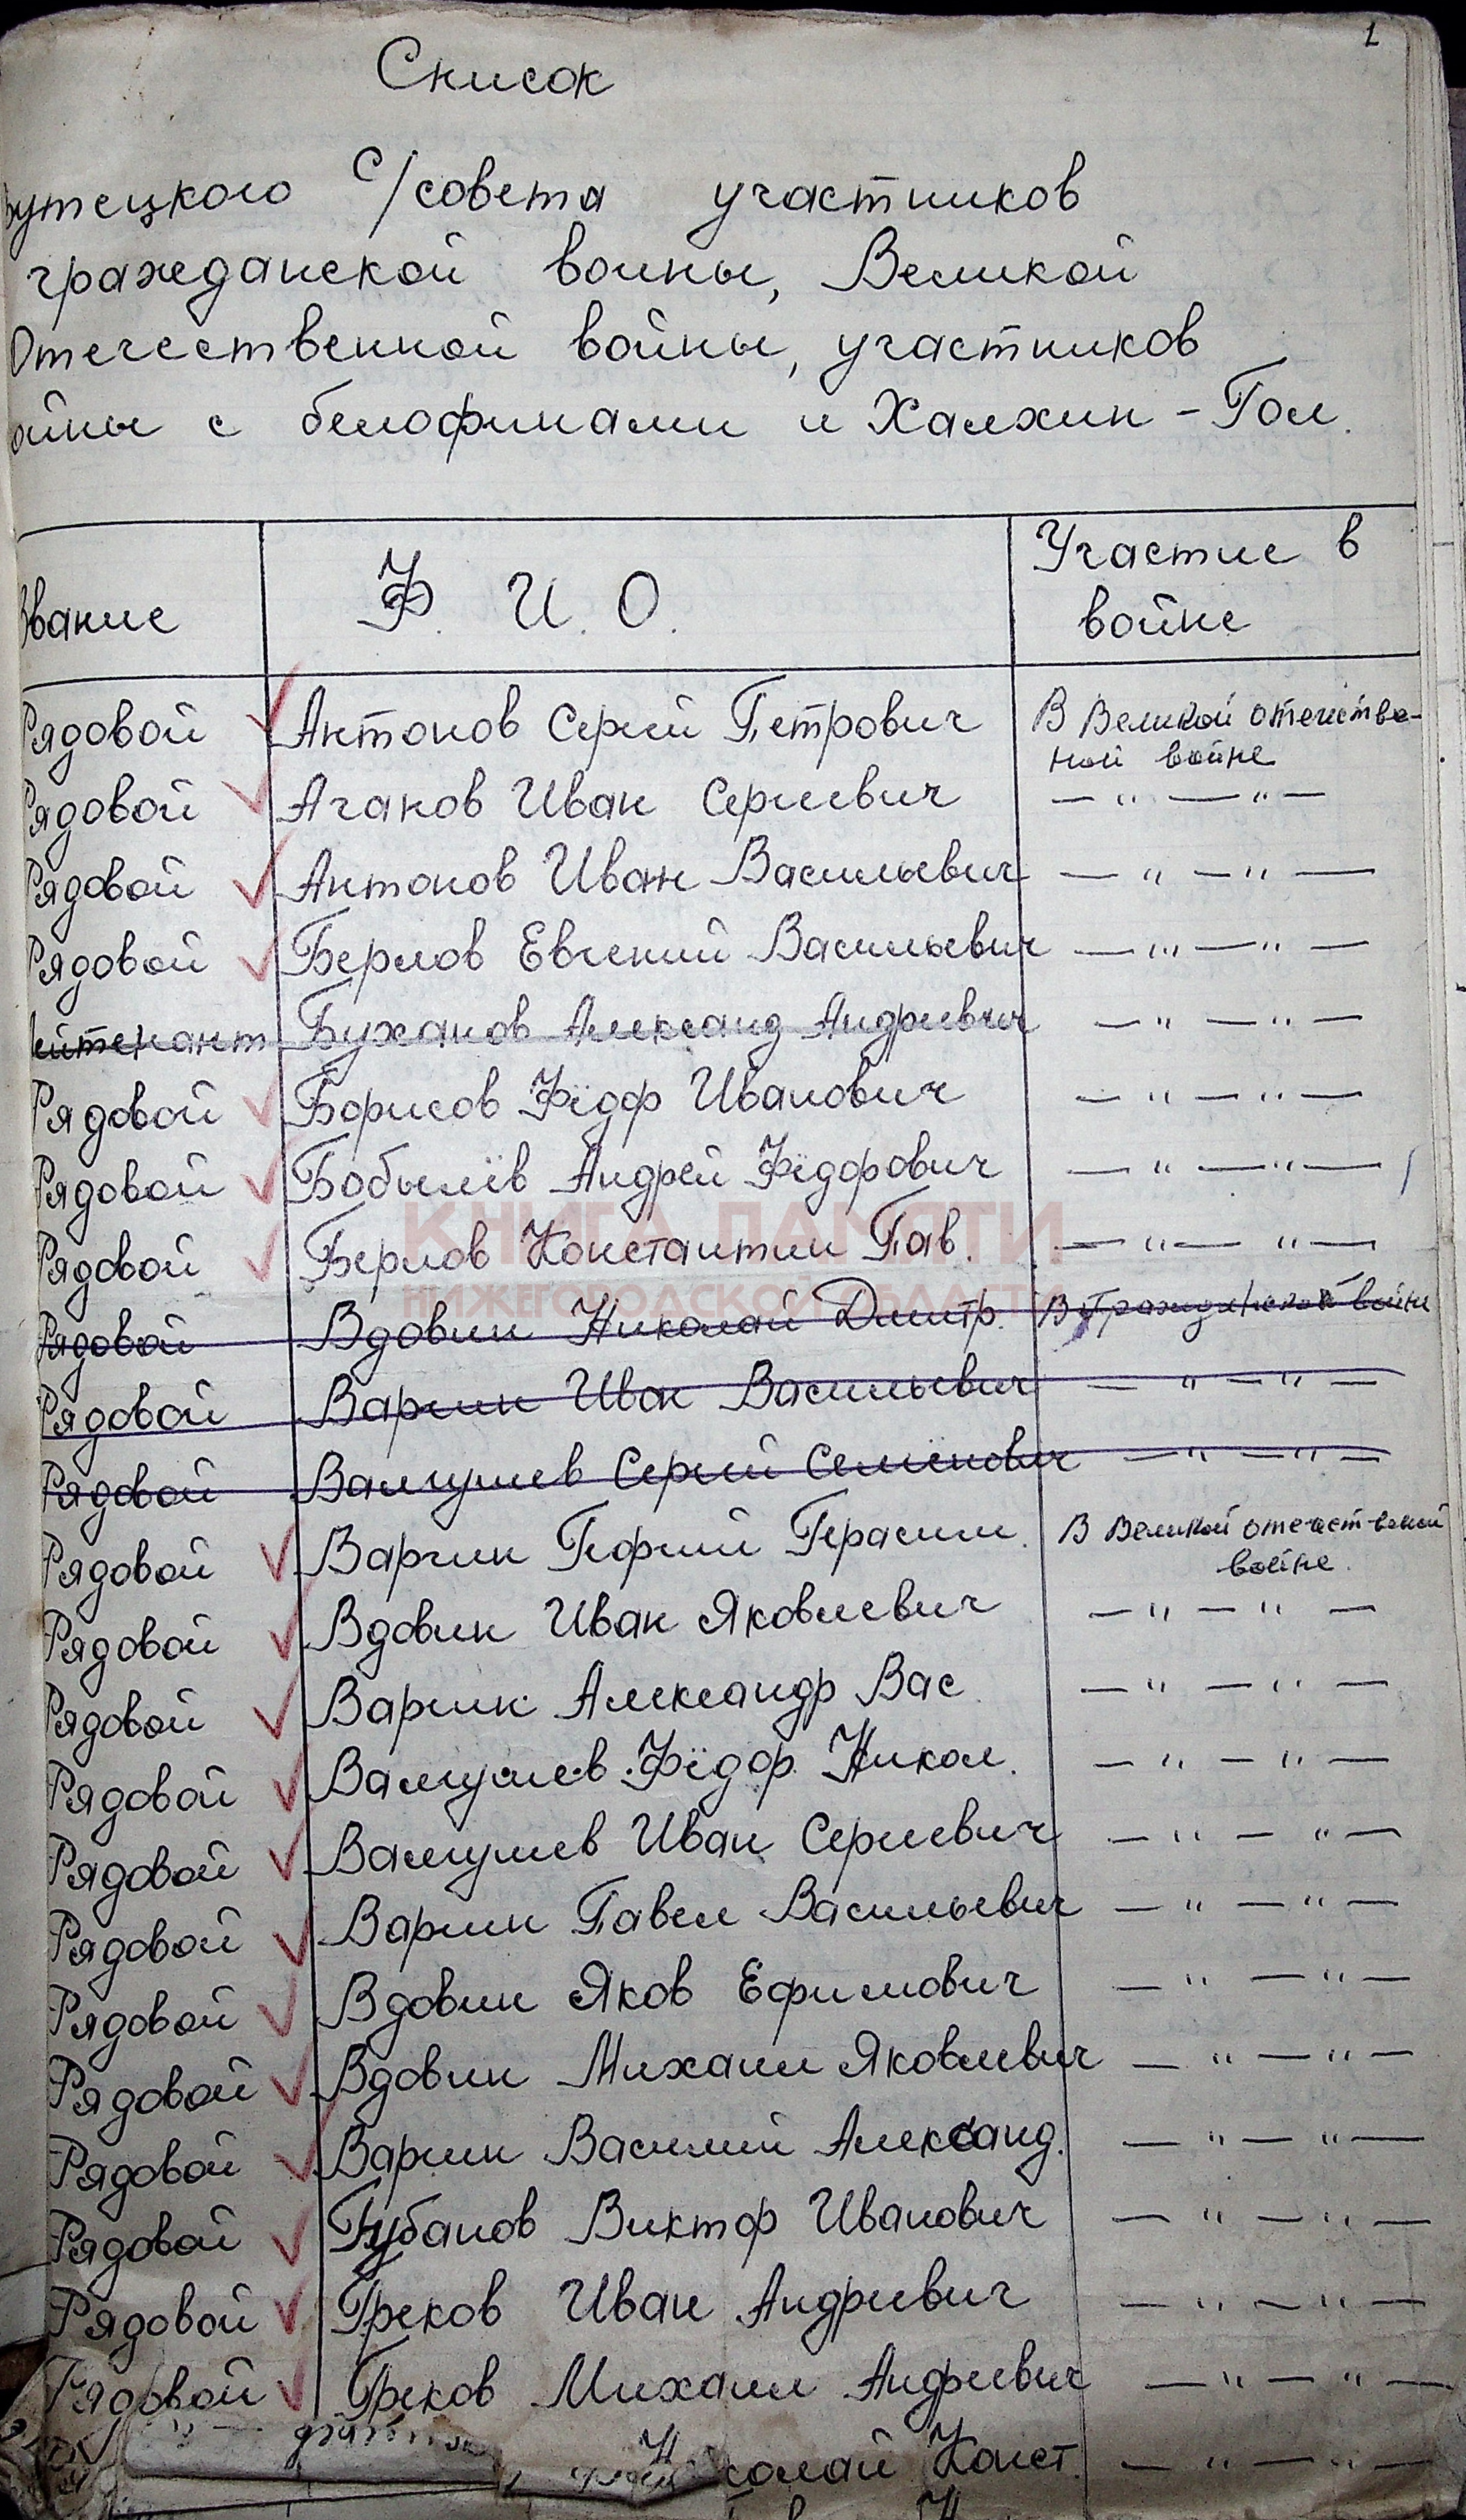 1
Список
утецкого с/совета участников
гражданской войны, Великой
Отечественной войны, участников
ойны с белофинами и Халхин-Гол.
Звание Ф. И. О. Участие в
войне
Рядовой Антонов Сергей Петрович В Великой отечестве-
ной войне
Рядовой Агапов Иван Сергеевич — " — " —
Рядовой Антонов Иван Васильевич — " — " —
Рядовой Берлов Евгений Васильевич — " — " —
ейтенант Буханов Александ Андреевич — " — " —
Рядовой Борисов Фёдор Иванович — " — " —
Рядовой Бобылёв Андрей Фёдорович — " — " —
Рядовой Берлов Константин Пав. — " — " —
КНИГА ПАМЯТИ
НИЖЕГОРОДСКОЙ ОБЛАСТИ
Рядовой Вдовин Николай Дмитр. В Гражданской войне
Рядовой Варгин Иван Васильевич — " — " —
Рядовой Валгушев Сергей Семёнович — " — " —
Рядовой Варгин Георгий Герасим. В Великой отечественой
войне.
Рядовой Вдовин Иван Яковлевич — " — " —
Рядовой Варгин Александр Вас — " — " —
Рядовой Валгушев Фёдор Никол. — " — " —
Рядовой Валгушев Иван Сергеевич — " — " —
Рядовой Варгин Павел Васильевич — " — " —
Рядовой Вдовин Яков Ефимович — " — " —
Рядовой Вдовин Михаил Яковлевич — " — " —
Рядовой Варгин Василий Александ. — " — " —
Рядовой Губанов Виктор Иванович — " — " —
Рядовой Греков Иван Андреевич — " — " —
Рядовой Греков Михаил Андреевич — " — " —
колай Конст. — " — " —